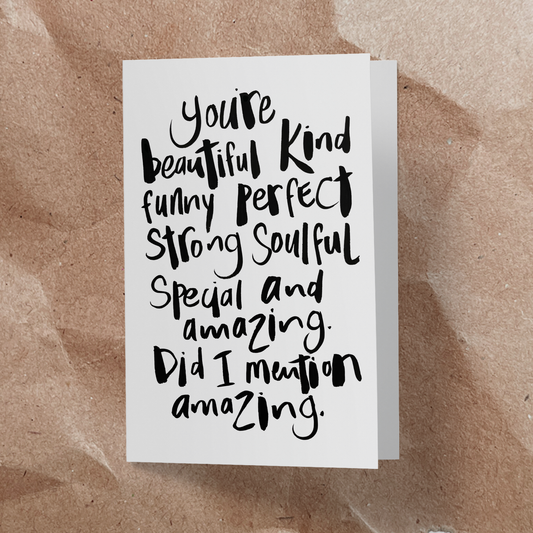 you're
beautiful kind
funny perfect
strong soulful
special and
amazing.
Did I mention
amazing.